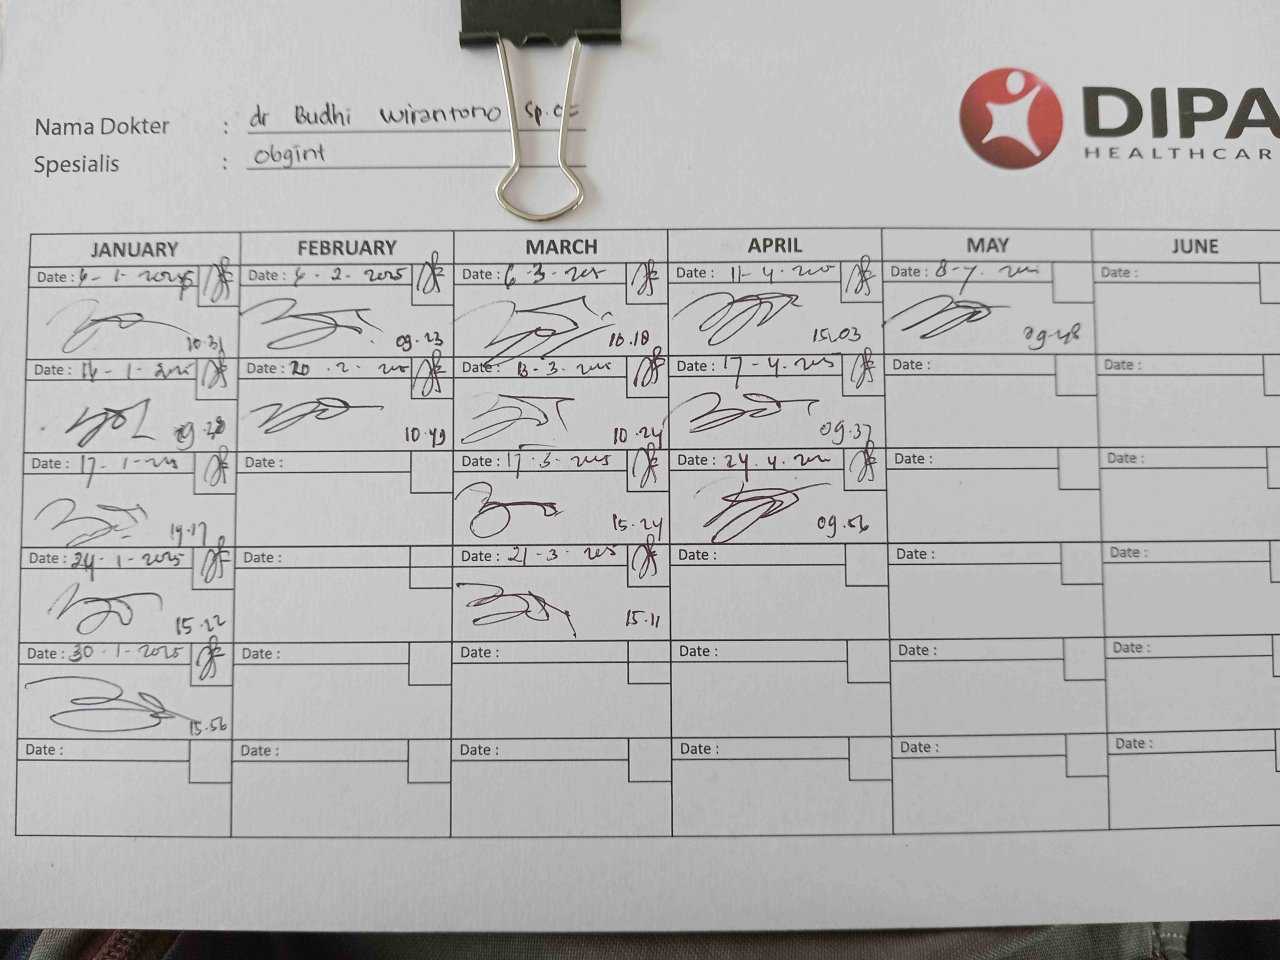 Nama Dokter : dr Budhi Wirantono Sp.OG
Spesialis : Obgint
DIPA
HEALTHCAR
JANUARY FEBRUARY MARCH APRIL MAY JUNE
Date : 6-1-2025 Date : 6-2-2025 Date : 6-3-2025 Date : 11-4-2025 Date : 8-7-2025 Date :
10.31 09.23 10.18 15.03 09.48
Date : 16-1-2025 Date : 20.2-2025 Date : 13-3-2025 Date : 17-4-2025 Date : Date :
09.28 10.49 10.24 09.37
Date : 17-1-2025 Date : Date : 17-3-2025 Date : 24.4.2025 Date : Date :
19.17 15.24 09.56
Date : 24-1-2025 Date : Date : 21-3-2025 Date : Date : Date :
15.22 15.11
Date : 30-1-2025 Date : Date : Date : Date : Date :
15.56
Date : Date : Date : Date : Date : Date :